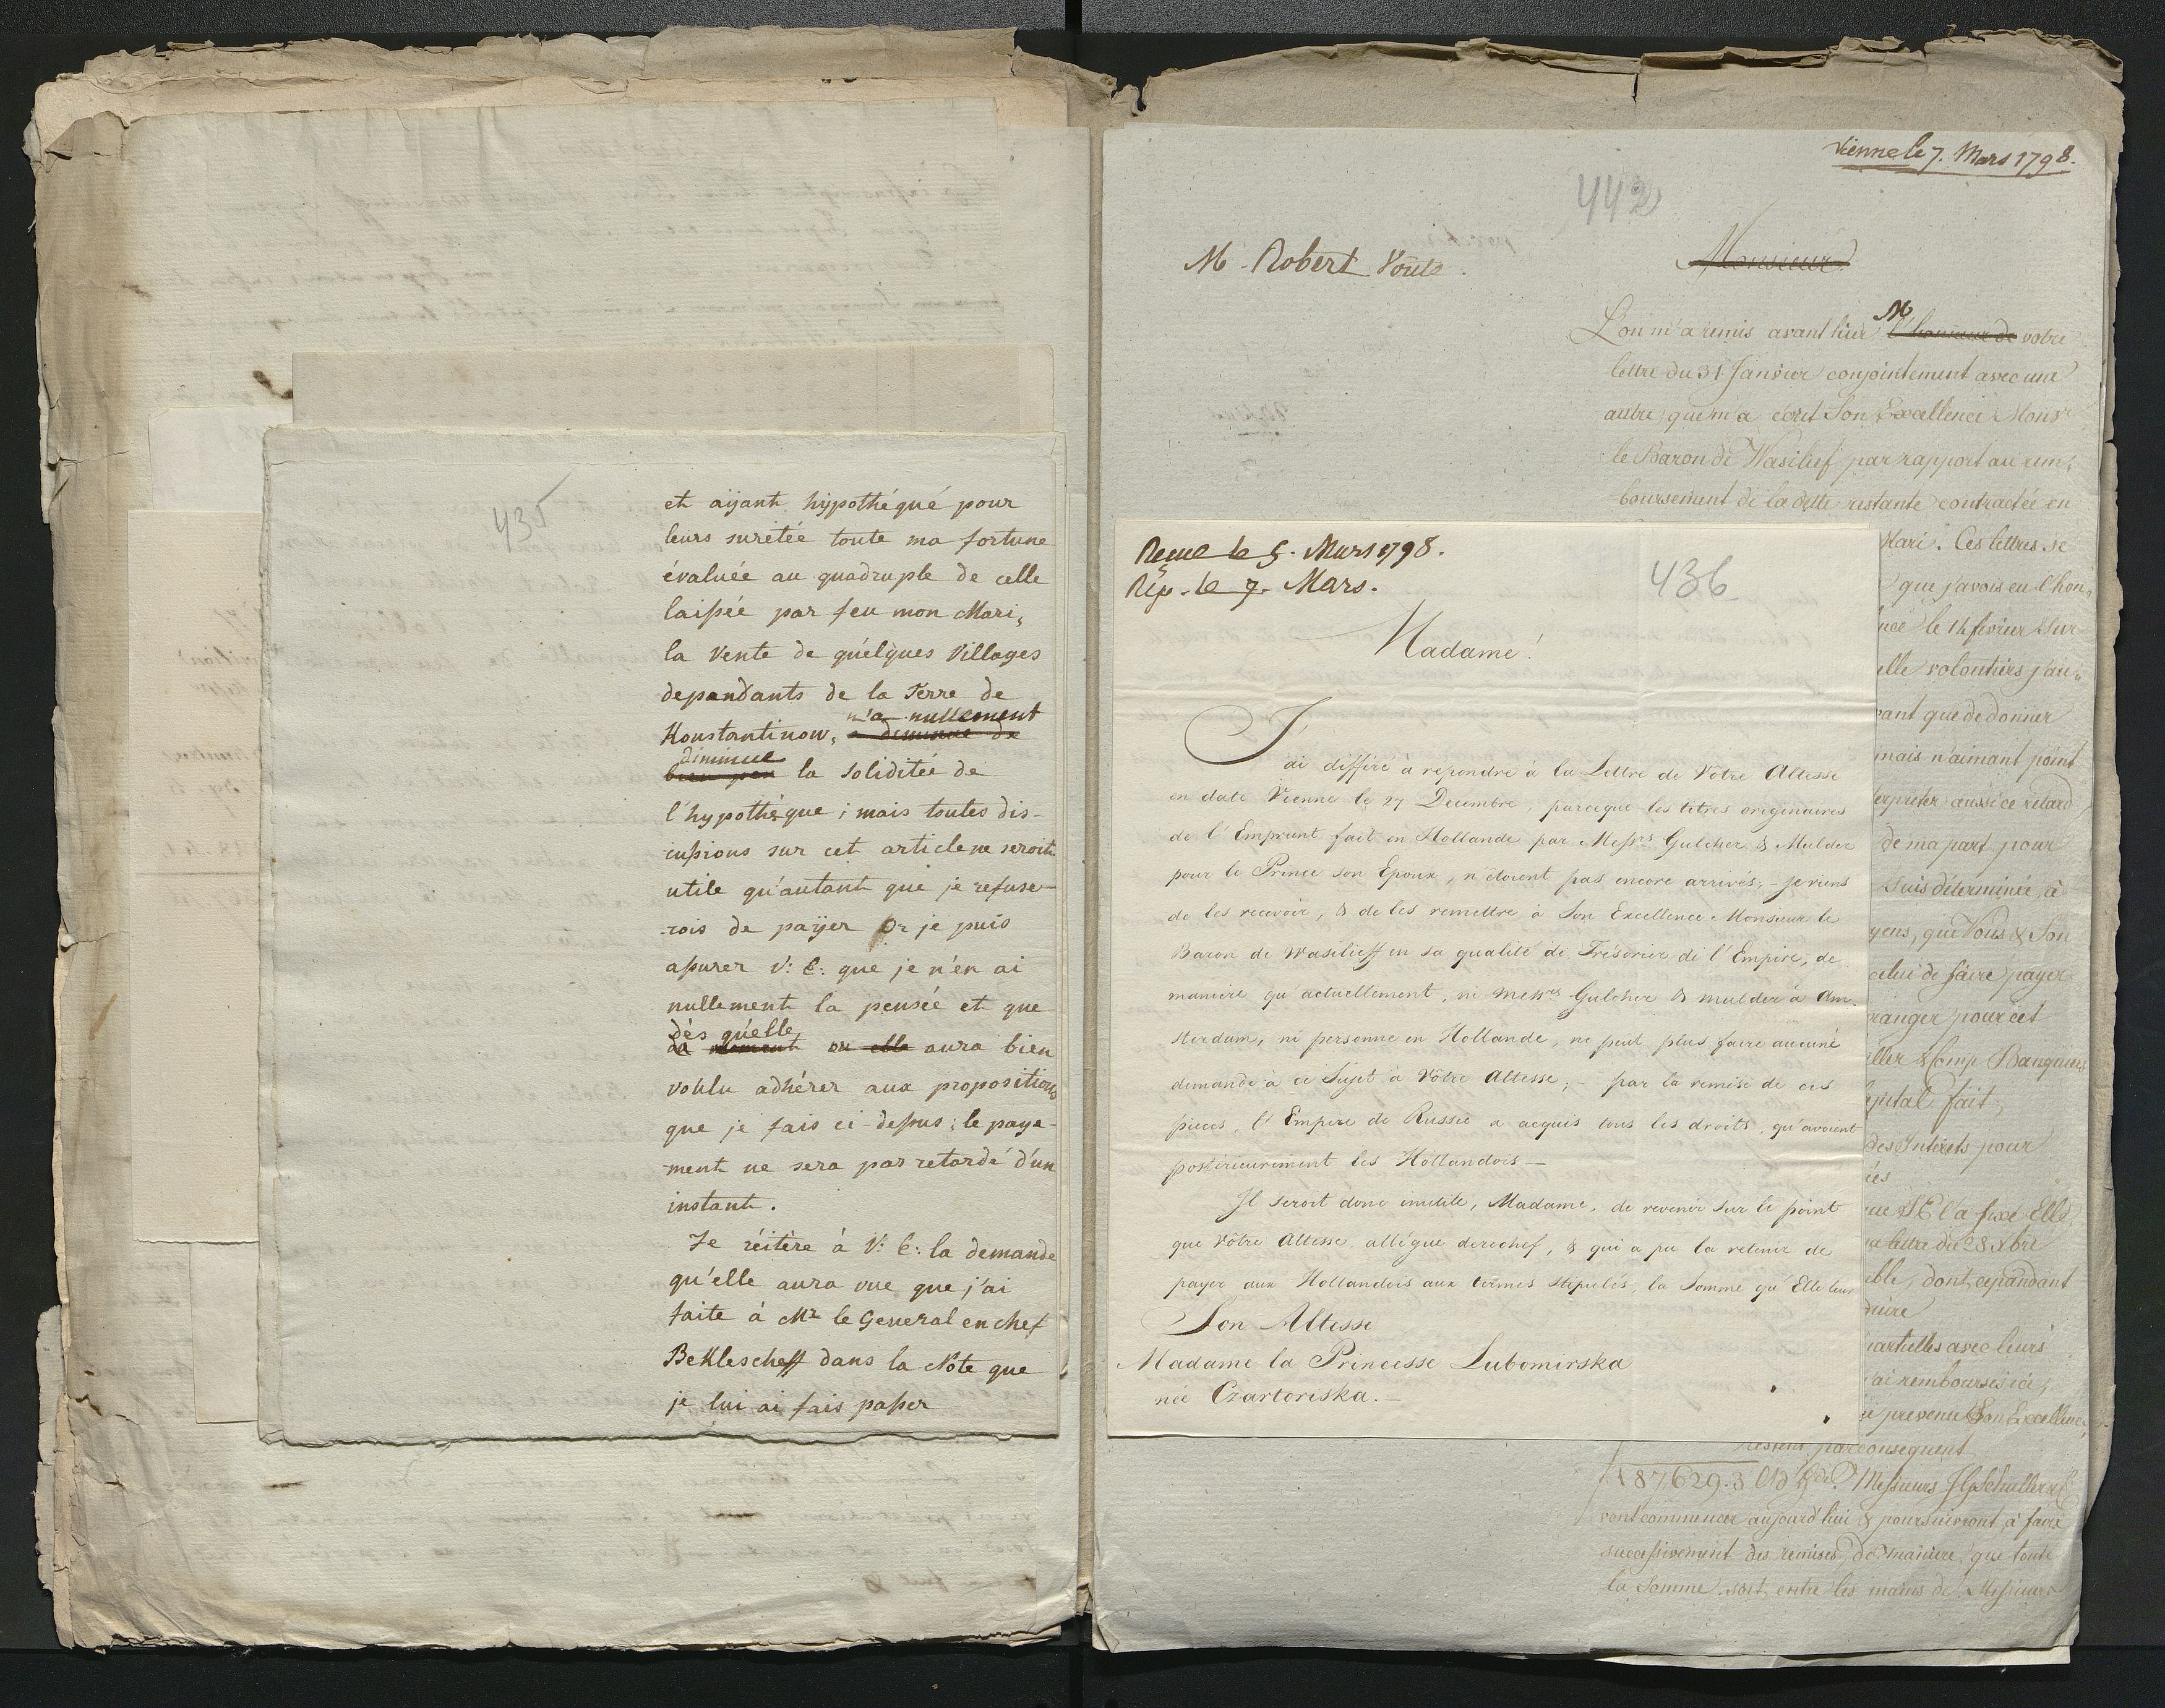 435
et aÿant hypothéqué pour
leurs surétée toute ma fortune
évaluée au quadruple de celle
laissée par feu mon Mari,
la Vente de quélques Villages
dependants de la Terre de
n'a nullement
Konstantinow, a diminué de
diminué
bien peu la soliditée de
l'hypothéque ; mais toutes dis-
cussions sur cet article ne seroit
utile qu'autant que je refuse-
-rois de paÿer Or je puis
assurer V: E: que je n'en ai
nullement la pensée et que
dès qu'elle
au moment ou elle aura bien
voulu adhérer aux propositions
que je fais ci-dessus ; le paye-
-ment ne sera pas retardé d'un
instant.
Je réitère à V: E: la demande
qu'elle aura vue que j'ai
faite à Mr le General en chef
Bekleschoff dans la Note que
je lui ai fais passer
Vienne le 7. Mars 1798.
442
M. Robert Voûte.
Monsieur
M
L'on m'a remis avant hier l'honneur de votre
lettre du 31 Janvier conjointement avec une
autre que m'a ecrit Son Excellence Monsr
le Baron de Wasilief par rapport au rem-
boursement de la dette restante contractée en
Mari. Ces lettres se
que j'avois eu l'hon
le 14 fevrier Sur
elle volontiers j'au
vant que de donner
mais n'aimant point
erpreter aussi ce retard
de ma part pour
suis déterminée, à
yens, que Vous & Son
celui de faire payer
ranger pour cet
iller & Comp Banquiers
apital fait
des Intérêts pour
ées
que S E l'a fixé Elle
la lettre du 28 Xbre
eble, dont cependant
duire
artielles avec leurs
j'ai rembourses ici,
ai prevenu Son Excellence
restent par consequent
87629.3 Messieurs Schuller & C
vont commencer aujourd'hui & poursuivront à faire
successivement des remises, de manière que toute
la Somme soit entre les mains de Messieurs
Reçue le 5. Mars 1798.
Rép. le 7. Mars.
436
Madame!
J'ai différé à repondre à la Lettre de Vôtre Altesse
en date Vienne le 27 Decembre, parceque les titres originaires
de l'Emprunt fait en Hollande par Messrs Gulcher & Mulder
pour le Prince son Epoux, n'étoient pas encore arrivés; - je viens
de les recevoir, & de les remettre à Son Excellence Monsieur le
Baron de Wasilieff en sa qualité de Trésorier de l'Empire, de
maniere qu'actuellement, ni Messrs Gulcher & Mulder à Am-
sterdam, ni personne en Hollande, ne peut plus faire aucune
demande à ce Sujet à Vôtre Altesse; - par la remise de ces
pieces, l'Empire de Russie a acquis tous les droits, qu'avoient
postérieurement les Hollandois —
Il seroit donc inutile, Madame, de revenir sur le point
que Vôtre Altesse allégue derechef, & qui a pu la retenir de
payer aux Hollandois aux termes stipulés, la Somme qu'Elle leur
Son Altesse
Madame la Princesse Lubomirska
née Czartoriska. —